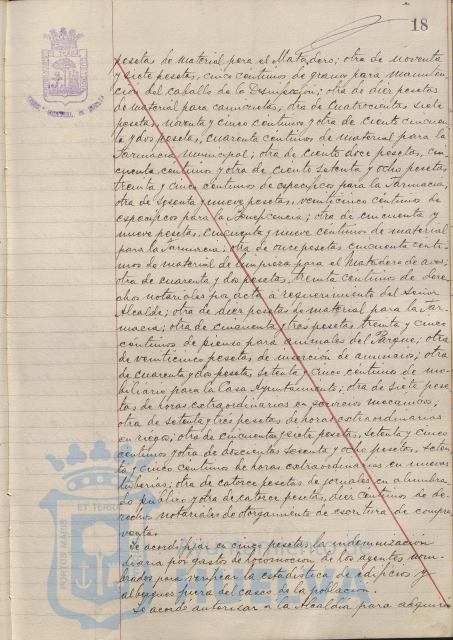 18
pesetas de material para el Matadero; otra de noventa
y siete pesetas, cinco centimos de granos para manuten
cion del caballo de la Inspeccion; otra de diez pesetas
de material para camionetas; otra de cuatrocientas siete
pesetas, noventa y cinco centimos y otra de ciento cincuen
ta y dos pesetas, cuarenta centimos de material para la
Farmacia Municipal; otra de ciento doce pesetas, cin
cuenta centimos y otra de ciento setenta y ocho pesetas
treinta y cinco centimos de especificos para la Farmacia,
otra de sesenta y nueve pesetas, veinticinco centimos de
especificos para la Beneficencia; otra de cincuenta y
nueve pesetas, cincuenta y nueve centimos de material
para la Farmacia; otra de once pesetas cincuenta centi
mos de material de limpieza para el Matadero de aves;
otra de cuarenta y dos pesetas, treinta centimos de dere
chos notariales por acta a requerimiento del Señor
Alcalde; otra de diez pesetas de material para la Far
macia; otra de cincuenta y tres pesetas treinta y cinco
centimos de pienso para animales del Parque; otra
de veinticinco pesetas de insercion de anuncios; otra
de cuarenta y dos pesetas, setenta y cinco centimos de mo
biliario para la Casa Ayuntamiento; otra de siete pese
tas de horas extraordinarias en servicios mecanicos;
otra de setenta y tres pesetas de horas extraordinarias
en riegos; otra de cincuenta y siete pesetas, setenta y cinco
centimos y otra de doscientas sesenta y ocho pesetas, seten
ta y cinco centimos de horas extraordinarias en nuevas
tuberias; otra de catorce pesetas de jornales en alumbra
do publico y otra de catorce pesetas, diez centimos de de
rechos notariales de otorgamiento de escritura de compra
venta.
Se acordó fijar en cinco pesetas la indemnizacion
diaria por gastos de locomocion de los agentes nom
brados para verificar la estadística de edificios y
albergues fuera del casco de la poblacion.
Se acordó autorizar a la Alcaldía para adquirir
PORTUS MARIS
ET TERRA